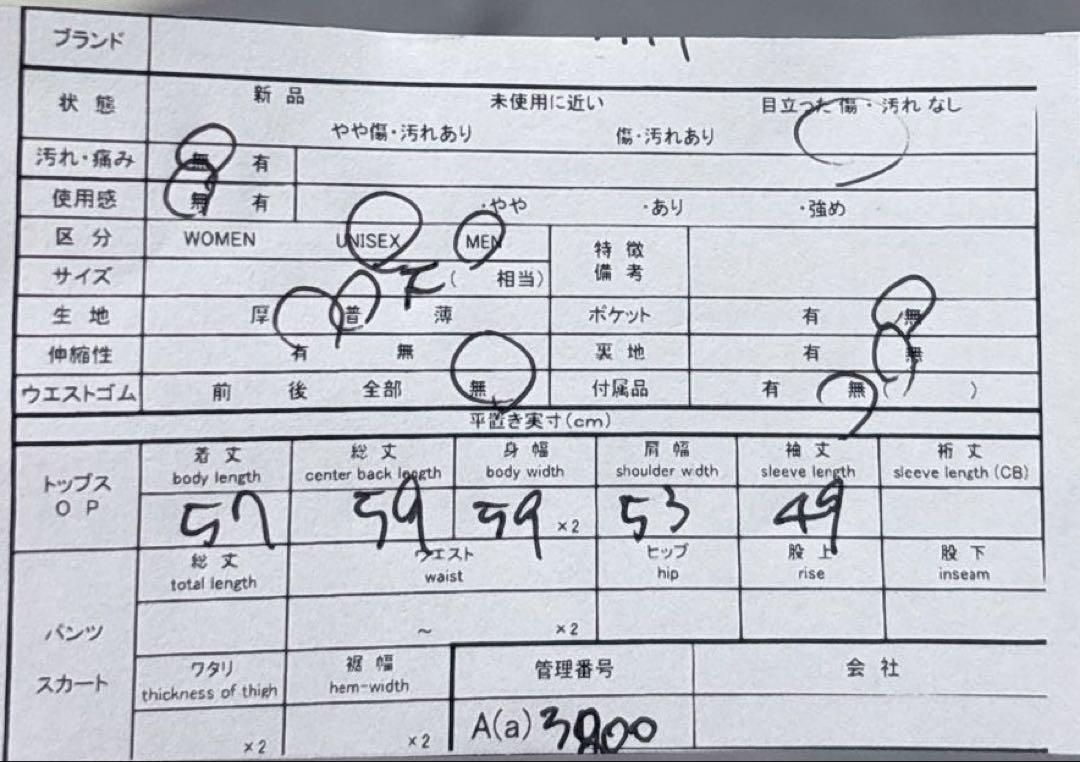 ブランド
状態 新品 未使用に近い 目立った傷・汚れなし
やや傷・汚れあり 傷・汚れあり
汚れ・痛み 無 有
使用感 無 有 ・やや ・あり ・強め
区分 WOMEN UNISEX MEN 特徴
備考
サイズ ( 相当)
生地 厚 普 薄 ポケット 有 無
伸縮性 有 無 裏地 有 無
ウエストゴム 前 後 全部 無 付属品 有 無 ( )
平置き実寸(cm)
トップス
OP
着丈 総丈 身幅 肩幅 袖丈 裄丈
body length center back length body width shoulder width sleeve length sleeve length (CB)
57 59 59 ×2 53 49
パンツ
スカート
総丈 ウエスト ヒップ 股上 股下
total length waist hip rise inseam
~ ×2
ワタリ 裾幅 管理番号 会社
thickness of thigh hem-width
×2 ×2 A(a) 3800